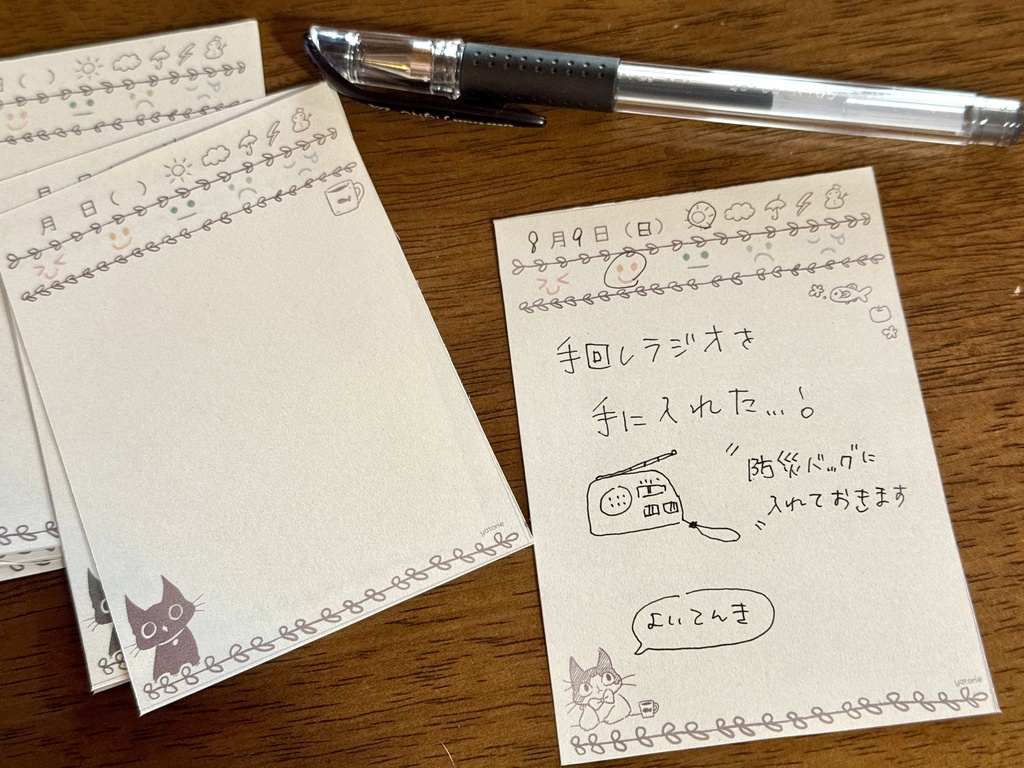 月
月 日 ( )
yatorie
8月9日(日)
手回しラジオを
手に入れた…!
〃防災バッグに
入れておきます〃
よいてんき
yatorie